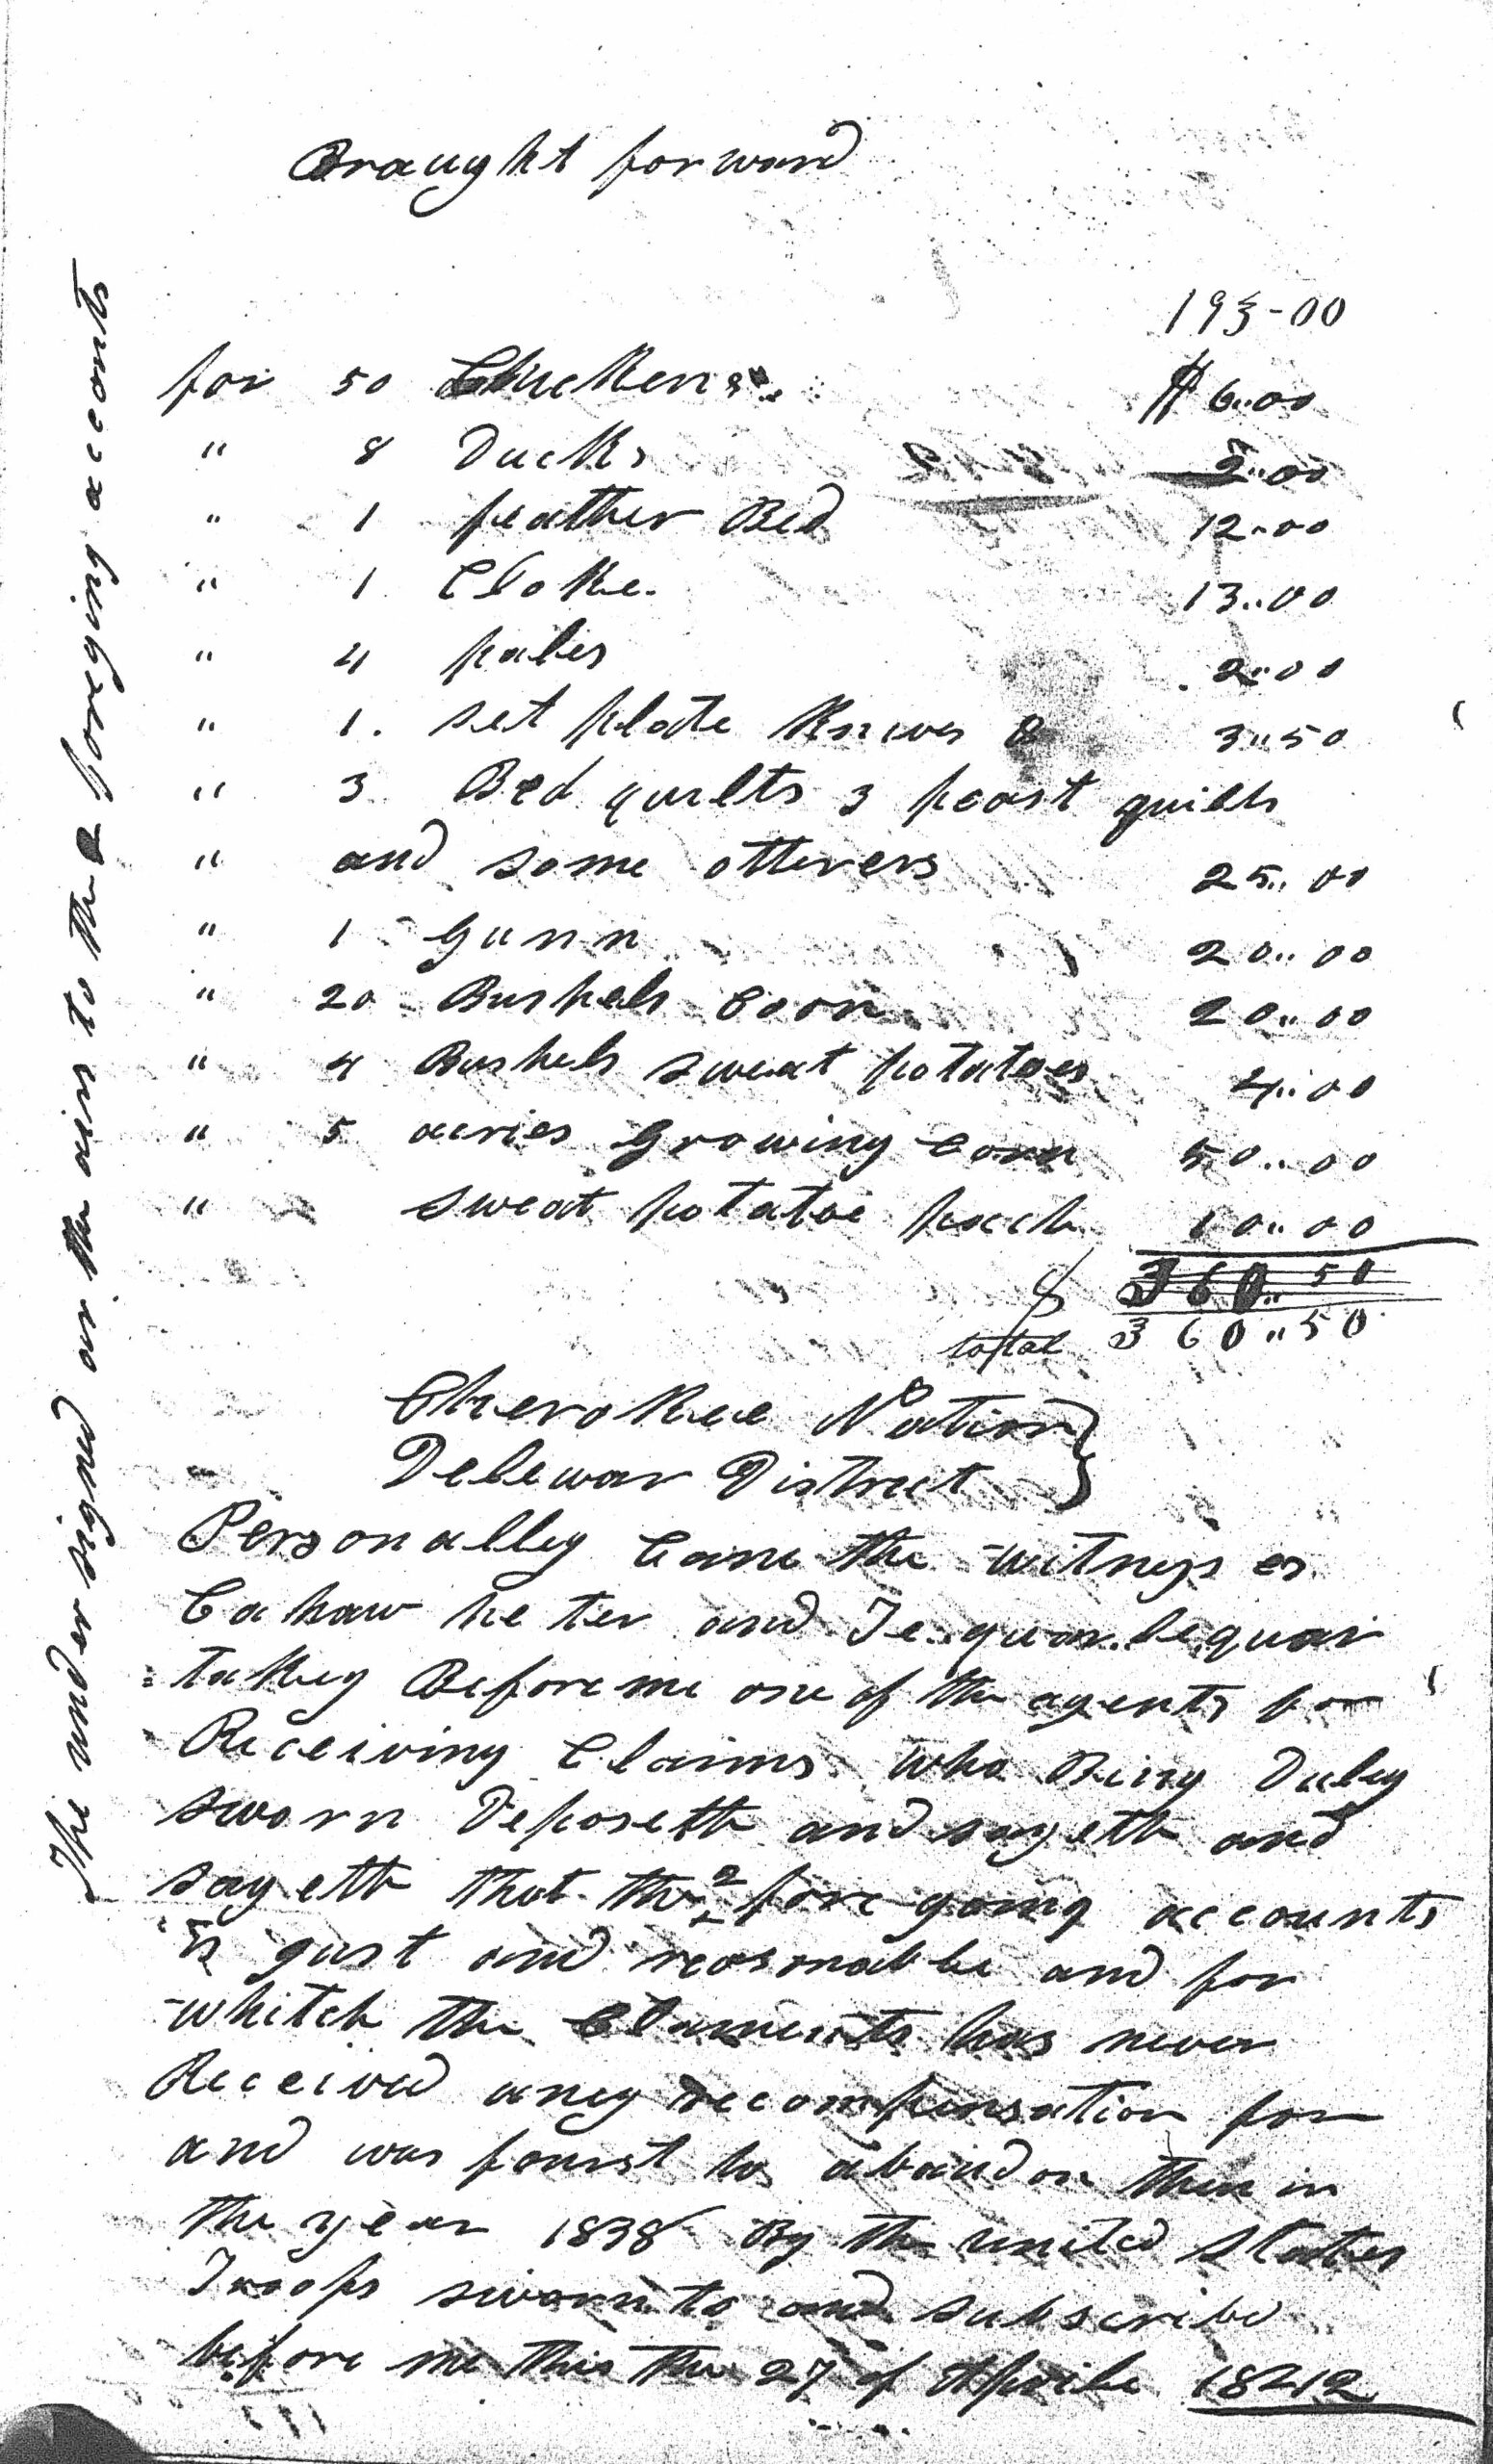 Braught forward
193-00
for 50 Chickens $6..00
" 8 Ducks 2..00
" 1 feather Bed 12..00
" 1 Cloke. 13..00
" 4 pales 2..00
" 1. set plate Knives & 3..50
" 3 Bed quilts 3 quilts
" and some otthers 25..00
" 1 Gunn 20..00
" 20 Bushels Coorn 20..00
" 4 Bushels sweat potatoes 4..00
" 5 acries Growing Corn 50..00
" sweat potatoe pach 10..00
$ 360..50
total 360..50
Cherokee Nation
Delewar District
Personalley Came the witnesses
Cahaw he ter and Te quar lequar
takey Before me one of the agents for
Receiving Claims who Bing Duley
sworn Deposeth and sayeth and
sayeth that the 2 fore going accounts
is gust and reasonable and for
whitch the Claments has never
Received aney recompensation for
and was fourst to abandon them in
the year 1838 By the united States
Troops sworn to and subscribed
before me this the 27 of Aprile 1842
The under signed as the airs to the 2 foreging acconts